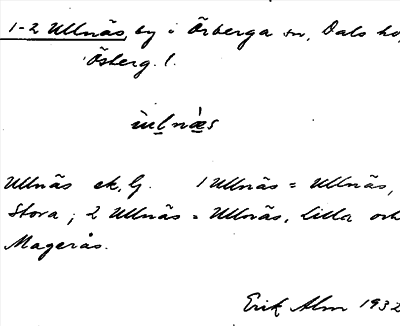 1-2 Ullnäs by i Örberga sn, Dals hd,
Österg. l.
ùlnàs
Ullnäs ek. bl. 1 Ullnäs = Ullnäs,
Stora; 2 Ullnäs = Ullnäs, Lilla och
Magerås.
Erik Alm 1932